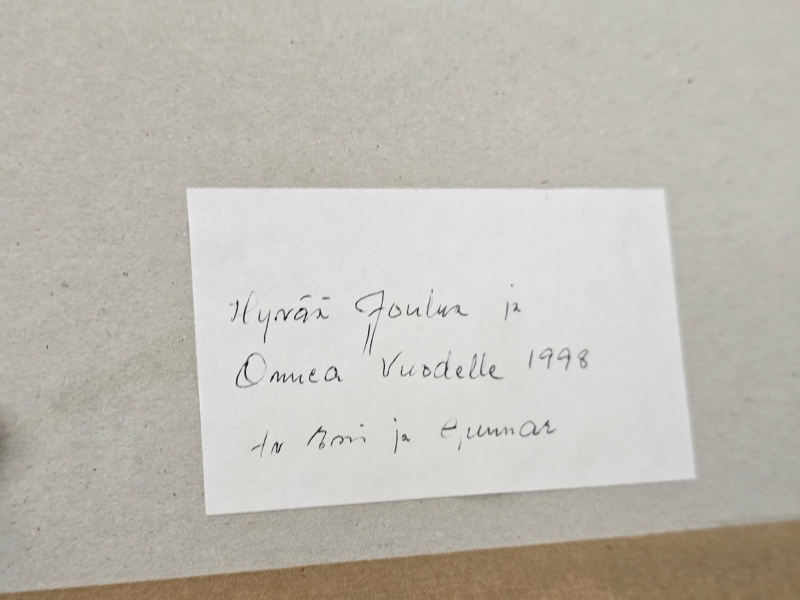 Hyvää Joulua ja
Onnea Vuodelle 1998
ja Gunnar